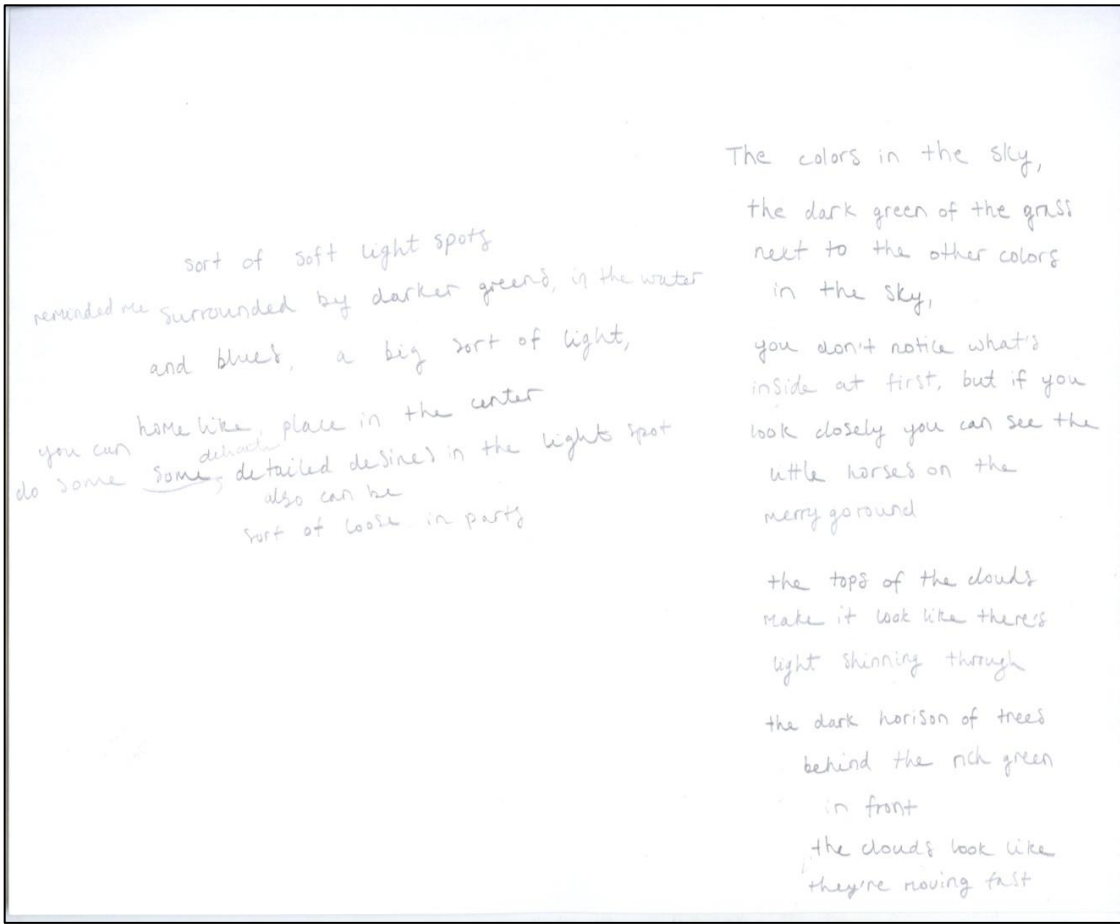 sort of soft light spots
reminded me surrounded by darker greens, in the water
and blues, a big sort of light,
home like, place in the center
you can
do some some, detailed desines in the lights spot
also can be
sort of loose in parts
The colors in the sky,
the dark green of the grass
next to the other colors
in the sky,
you don't notice what's
inside at first, but if you
look closely you can see the
little horses on the
merry go round
the tops of the clouds
make it look like there's
light shinning through
the dark horison of trees
behind the rich green
in front
the clouds look like
they're moving fast